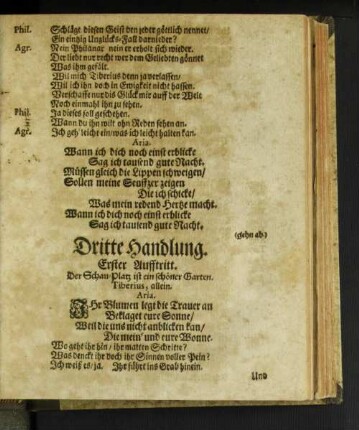 Phil. Schläge diesen Geist den jeder göttlich nennet/
Ein einzig Unglücks-Fall darnieder?
Agr. Nein Philänar nein er erholt sich wieder.
Der liebt nur recht wer dem Geliebten gönnet
Was ihm gefält.
Wil mich Tiberius denn ja verlassen/
Wil ich ihn doch in Ewigkeit nicht hassen.
Verschaffe nur diß Glück mir auff der Welt
Noch einmahl ihn zu sehen.
Phil. Ja dieses soll geschehen.
Wann du ihn wilt ohn Reden sehen an.
Agr. Ich geh' leicht ein/was ich leicht halten kan.
Aria.
Wann ich dich noch einst erblicke
Sag ich tausend gute Nacht.
Müssen gleich die Lippen schweigen/
Sollen meine Seuffzer zeigen
Die ich schicke/
Was mein redend Hertze macht.
Wann ich dich noch einst erblicke
Sag ich tausend gute Nacht.
(gehn ab.)
Dritte Handlung.
Erster Aufftritt.
Der Schau-Platz ist ein schöner Garten.
Tiberius, allein.
Aria.
IHr Blumen legt die Trauer an
Beklaget eure Sonne/
Weil die uns nicht anblicken kan/
Die mein' und eure Wonne.
Wo geht ihr hin/ ihr matten Schritte?
Was denckt ihr doch ihr Sinnen voller Pein?
Ich weiß es/ja. Ihr führt ins Grab hinein.
Und